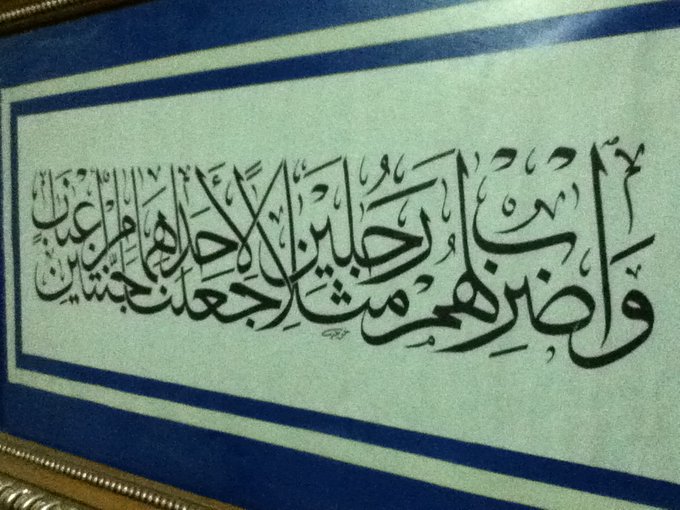 وَاضْرِبْ لَهُمْ مَثَلًا رَجُلَيْنِ جَعَلْنَا لِأَحَدِهِمَا جَنَّتَيْنِ مِنْ أَعْنَابٍ